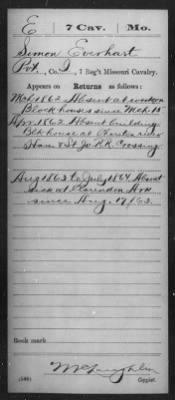 E | 7 Cav. | Mo.
Simon Everhart
Pvt., Co. I, 7 Reg't Missouri Cavalry.
Appears on Returns as follows:
Mch 1862 Absent at
Block houses since Mch 15
Apr 1862 Absent building
Blk house at Chariton river
Han & St Jo R.R. Crossing
Aug 1863 to July 1864 Absent
sick at Clarendon Ark
since Aug 17/63
Book mark
McLaughlin
(546) Copyist.